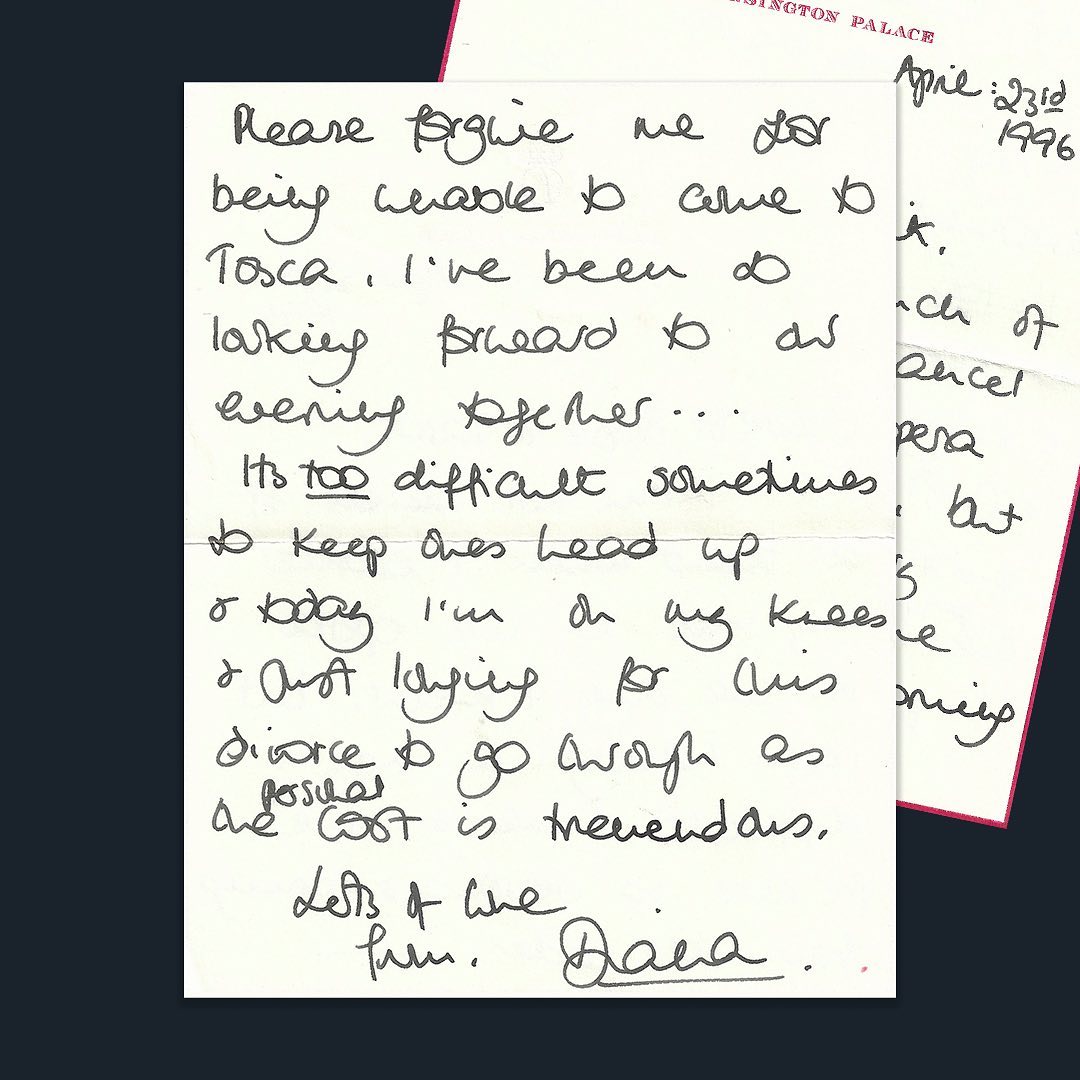 KENSINGTON PALACE
April : 23rd
1996
of
ancel
pera
but
oming
Please forgive me for
being unable to come to
Tosca, I've been so
looking forward to our
evening together...
Its too difficult sometimes
to keep ones head up
& today I'm on my knees
& just longing for this
divorce to go through as
personal
the cost is tremendous.
Lots of love
from. Diana.